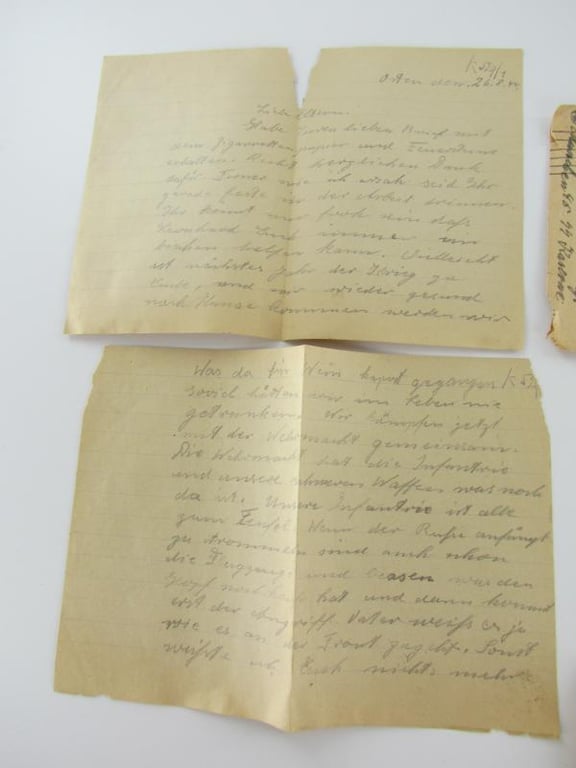 K 59/1
Osten den 26.8.44
Liebe Eltern.
Habe Euren lieben Brief mit
dem Zigarettenpapier und Feuersteine
erhalten. Recht herzlichen Dank
dafür. Immer wie ich seid Ihr
gerade feste in der Arbeit drinnen.
Ihr könnt nur froh sein daß
Euch immer ein
helfen kann. Vielleicht
ist nächstes Jahr der Krieg zu
Ende, und wir wieder gesund
nach Hause kommen werden wir
Was da für Wein kaput gegangen K 59
soviel hätten wir im Leben nie
getrunken. Wir kämpfen jetzt
mit der Wehrmacht gemeinsam.
Die Wehrmacht hat die Infantrie
und unsere schweren Waffen was noch
da ist. Unsere Infantrie ist alle
zum Teufel. Wenn der Ruße anfängt
zu trommeln sind auch schon
die Flugzeuge und wer den
Kopf noch hat und dann kommt
erst der Angriff. Vater weiß es ja
wie es an der Front zugeht. Sonst
wüßte ich Euch nichts mehr
44 Kaserne